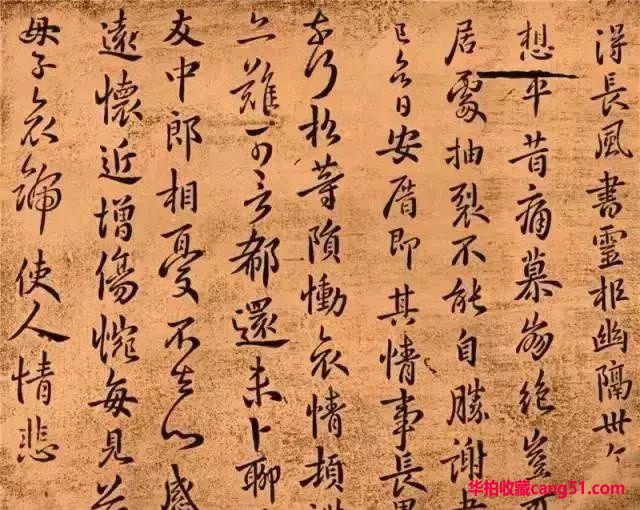 得長風書靈柩幽隔卅
想平昔痛慕崩絕豈可
居處抽裂不能自勝謝
日安厝即其情事長
松等隕慟哀情頓
亦難可言郗還未卜聊
友中郎相憂不去心感
遠懷近增傷惋每見
母子哀號使人情悲
华拍收藏cang51.com